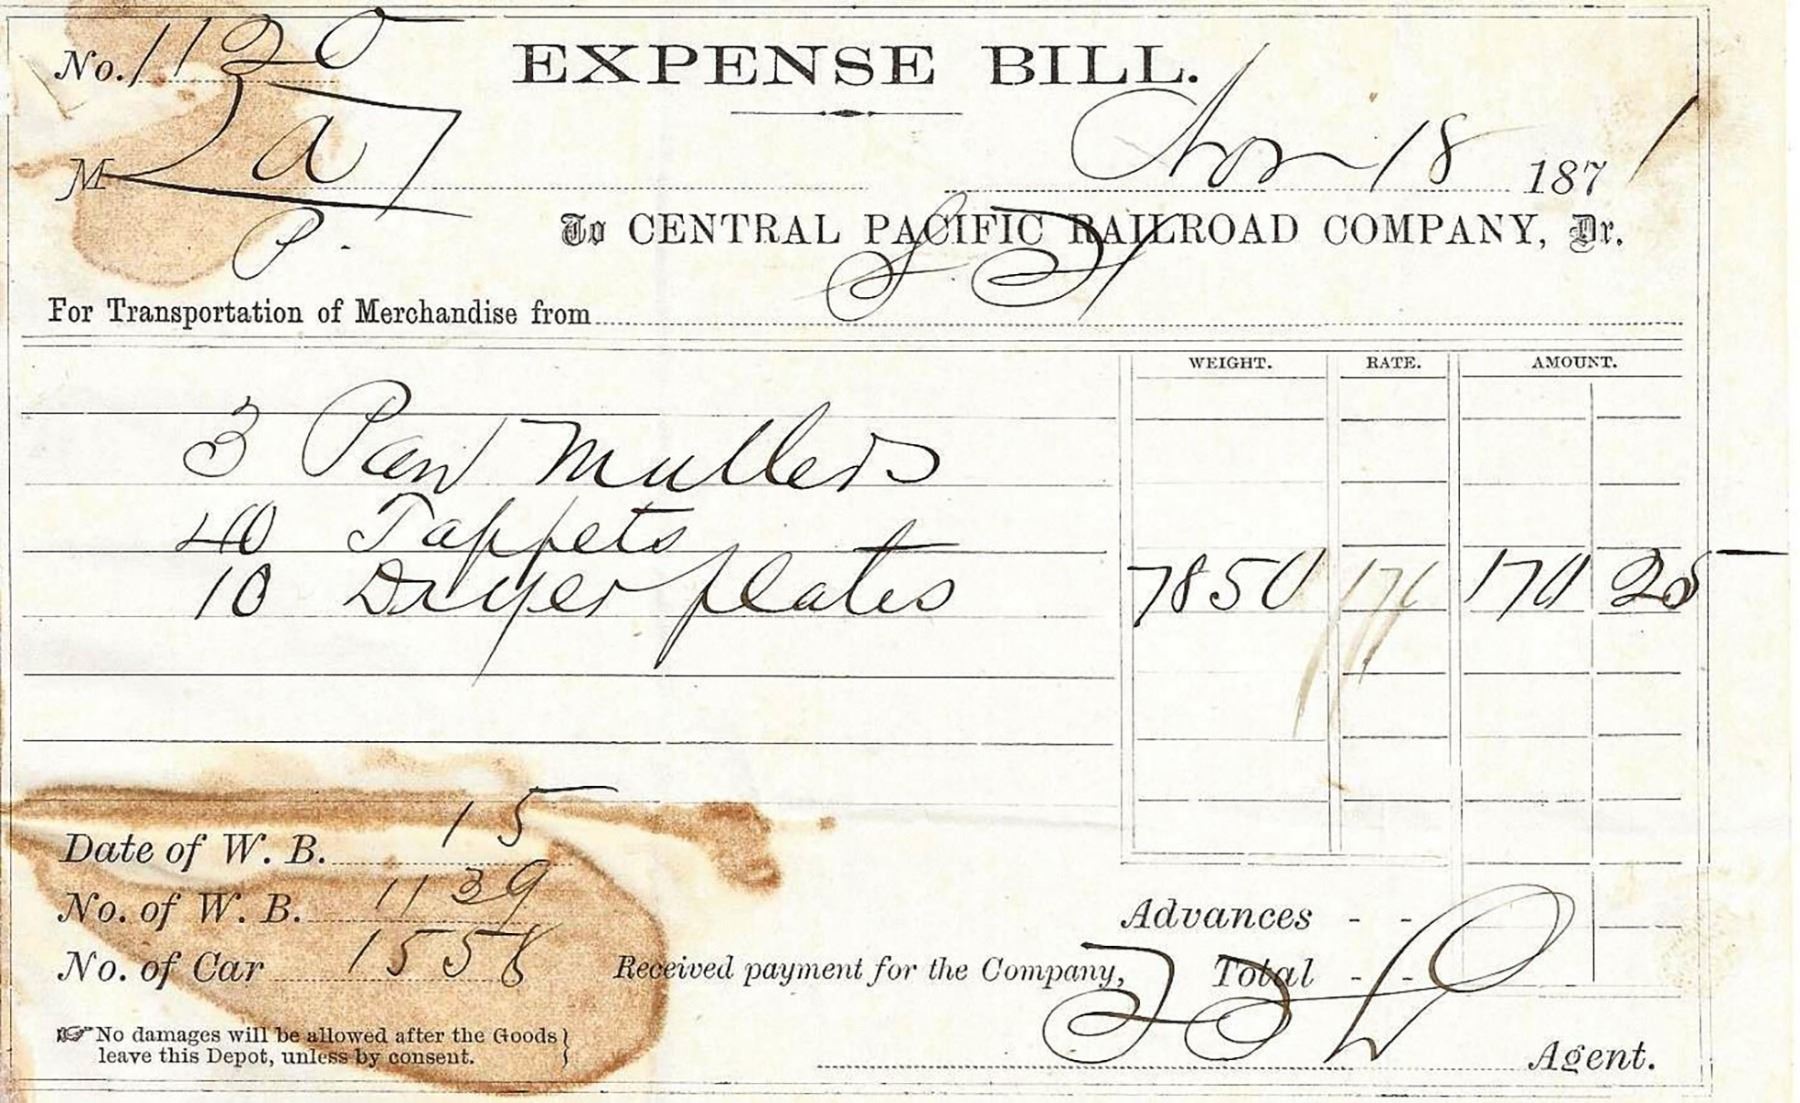 No. 1120
EXPENSE BILL.
M a
P.
Nov 18 1871
To CENTRAL PACIFIC RAILROAD COMPANY, Dr.
For Transportation of Merchandise from S. F.
WEIGHT. RATE. AMOUNT.
3 Pan Mullers
40 Tappets
10 Dryer plates 7850 170 25
Date of W. B. 15
No. of W. B. 1139
No. of Car 1558
Advances - -
Received payment for the Company, Total - -
☞ No damages will be allowed after the Goods
leave this Depot, unless by consent.
Agent.